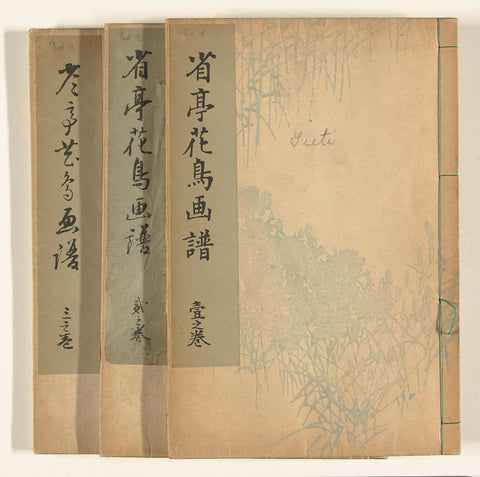 Vol 1
省亭花鳥画譜
壹之巻
Vol 2
省亭花鳥画譜
貳之巻
Vol 3
省亭花鳥画譜
三之巻